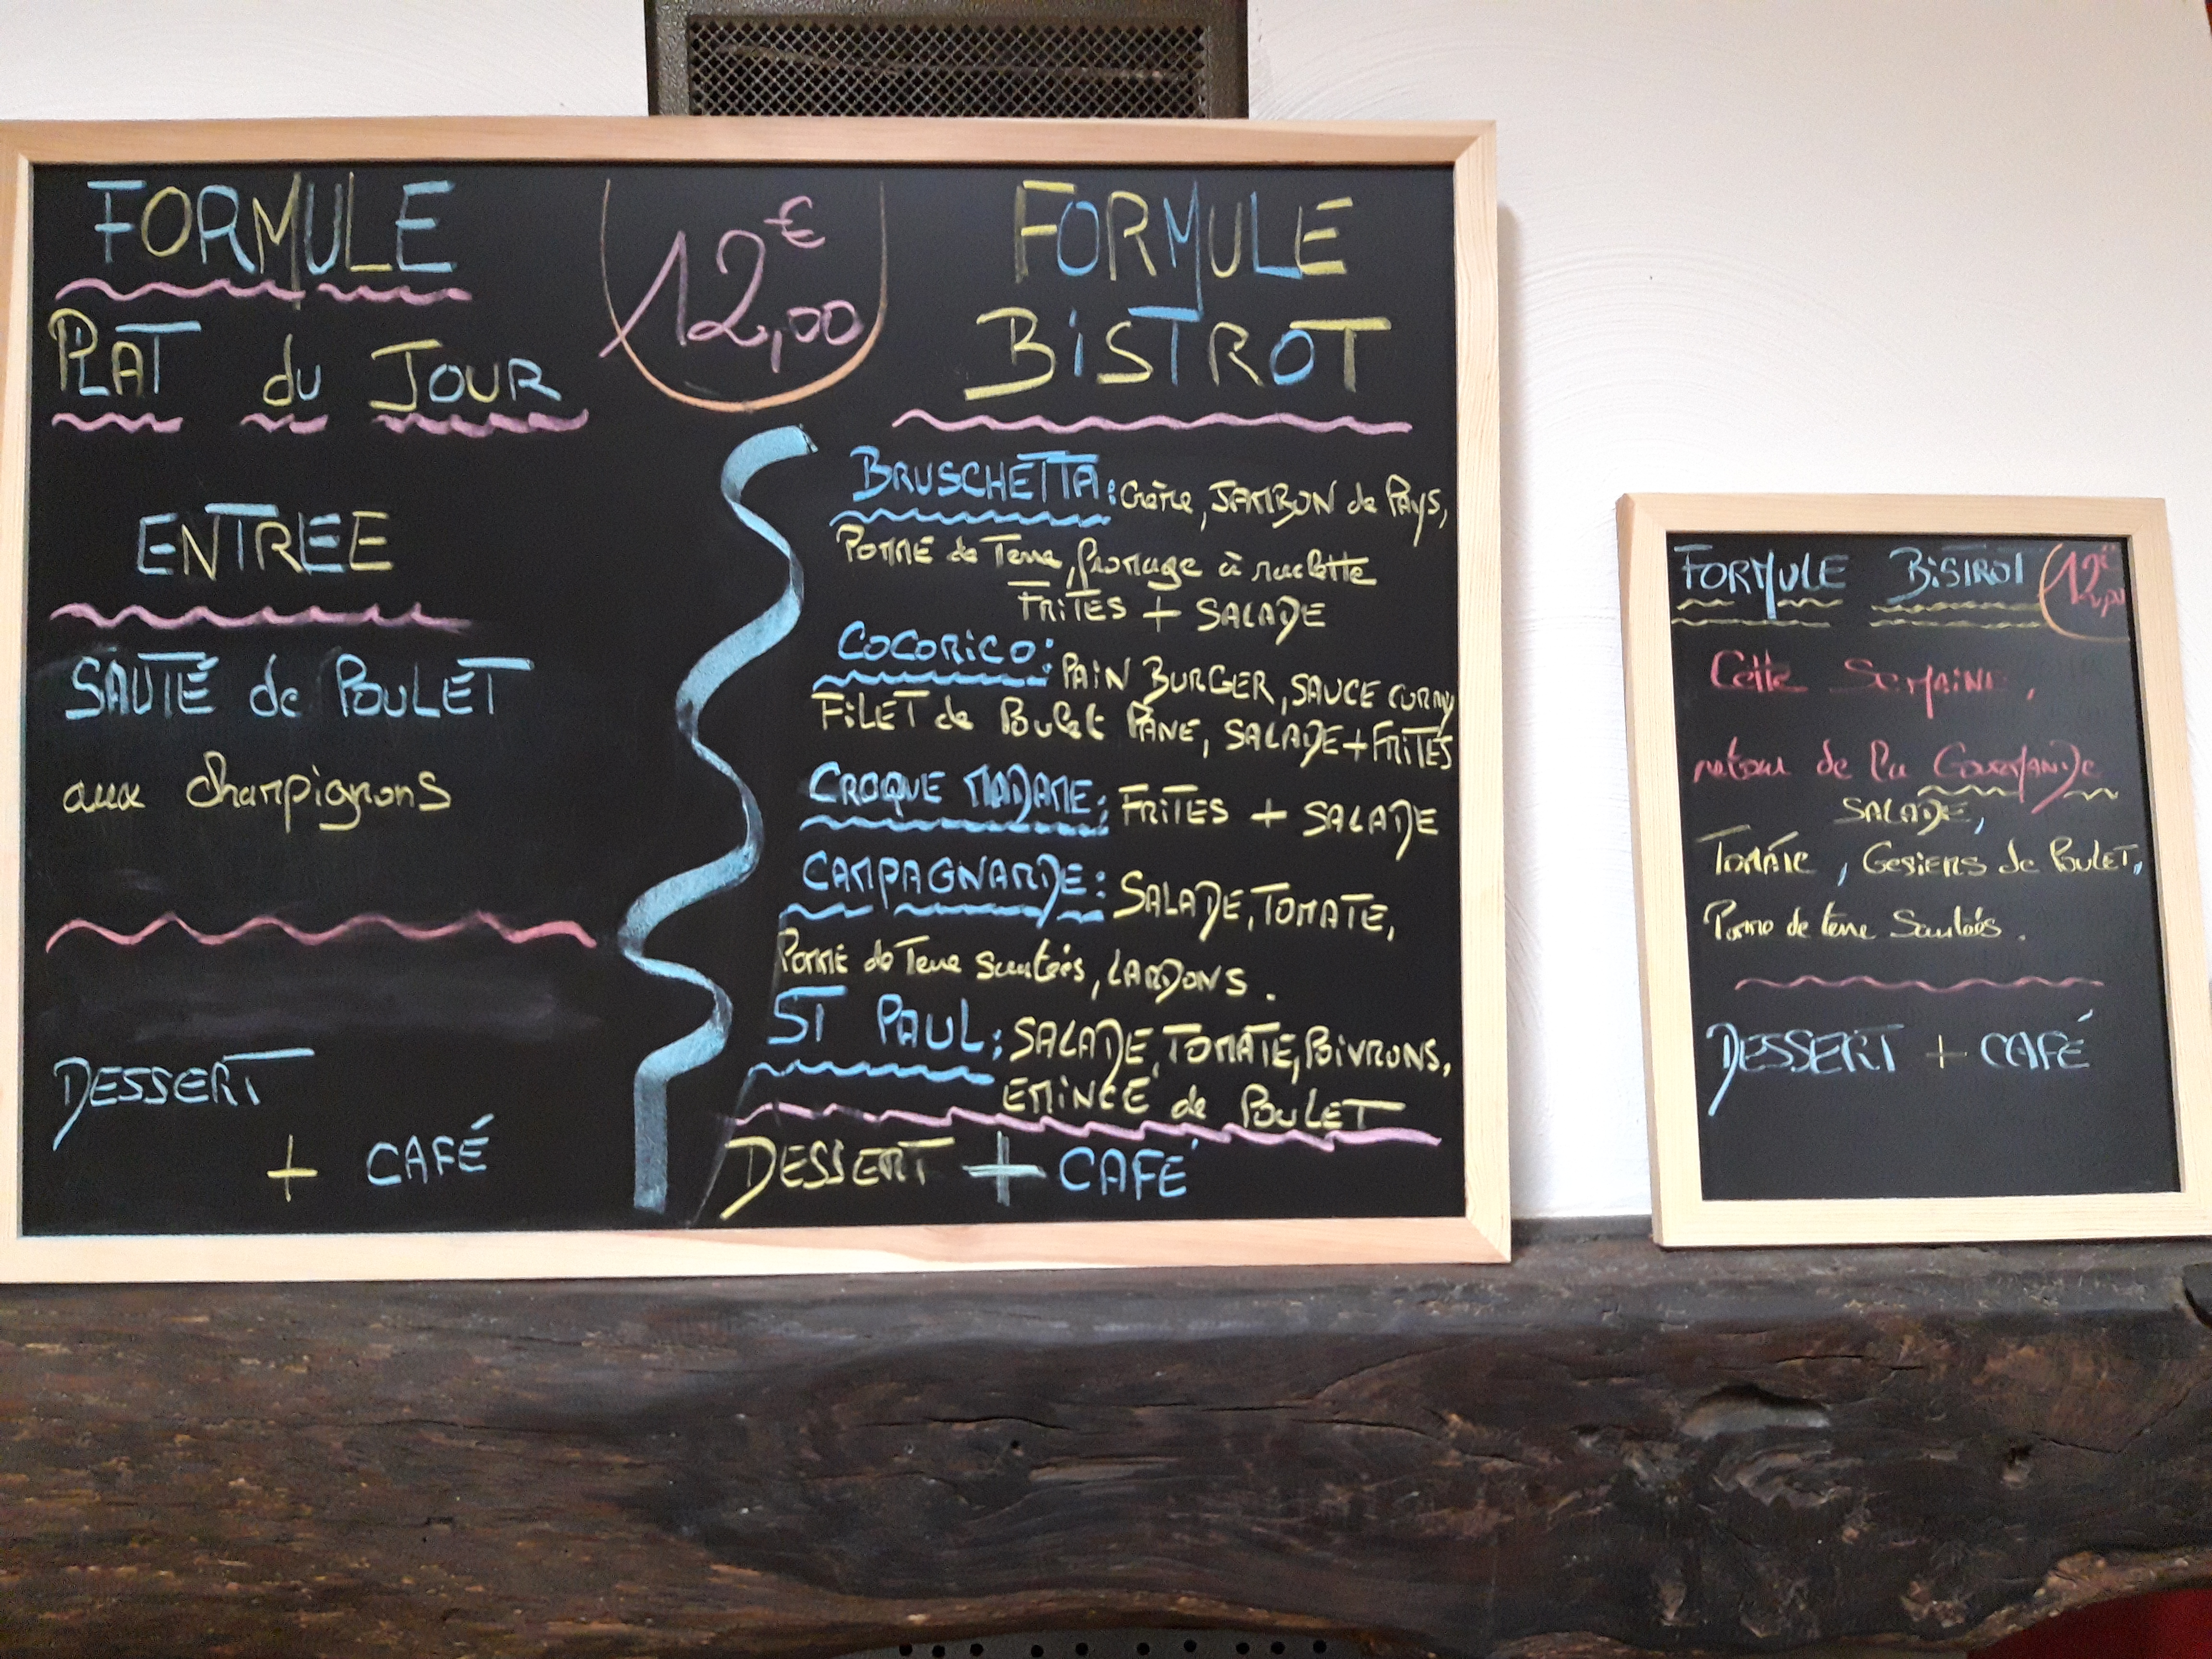 FORMULE
PLAT du JOUR
ENTREE
SAUTÉ de POULET
aux champignons
DESSERT
+ CAFÉ
12,00€
FORMULE
BISTROT
BRUSCHETTA: Crème, JAMBON de PAYS,
POMME de Terre, fromage à raclette
FRITES + SALADE
COCORICO: PAIN BURGER, SAUCE CURRY
FILET de Poulet PANE, SALADE + FRITES
CROQUE MADAME: FRITES + SALADE
CAMPAGNARDE: SALADE, TOMATE,
POMME de Terre sautées, LARDONS.
ST PAUL: SALADE, TOMATE, POIVRONS,
EMINCÉ de POULET
DESSERT + CAFÉ
FORMULE BISTROT 12€,00
Cette SEMAINE,
retour de la GOURMANDE
SALADE,
TOMATE, GESIERS de POULET,
Pomme de terre Sautées.
DESSERT + CAFÉ